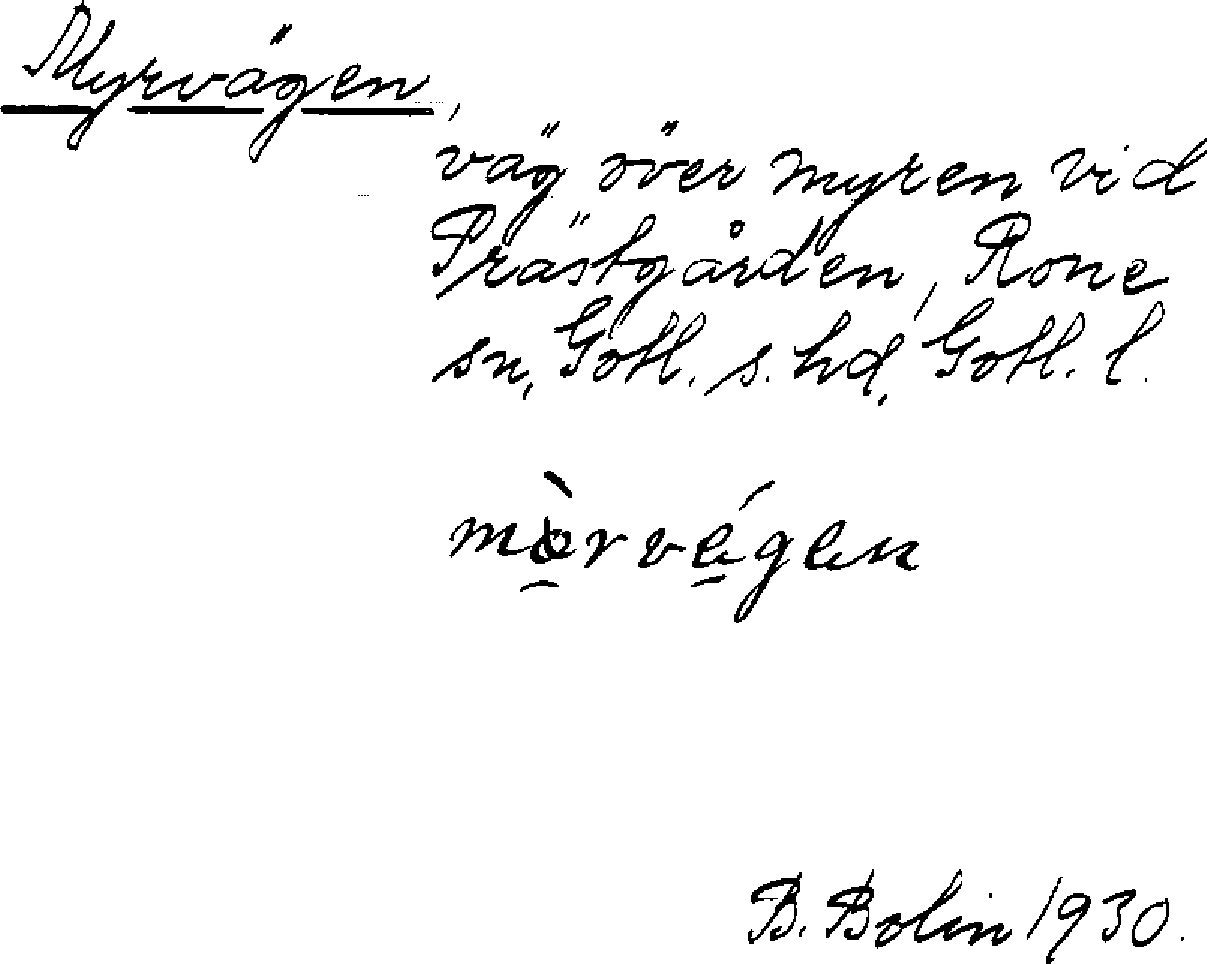 Myrvägen,
väg över myren vid
Prästgården, Rone
sn, Gotl. s. hd, Gotl. l.
mò̱rvé̱gen
B. Bolin 1930.